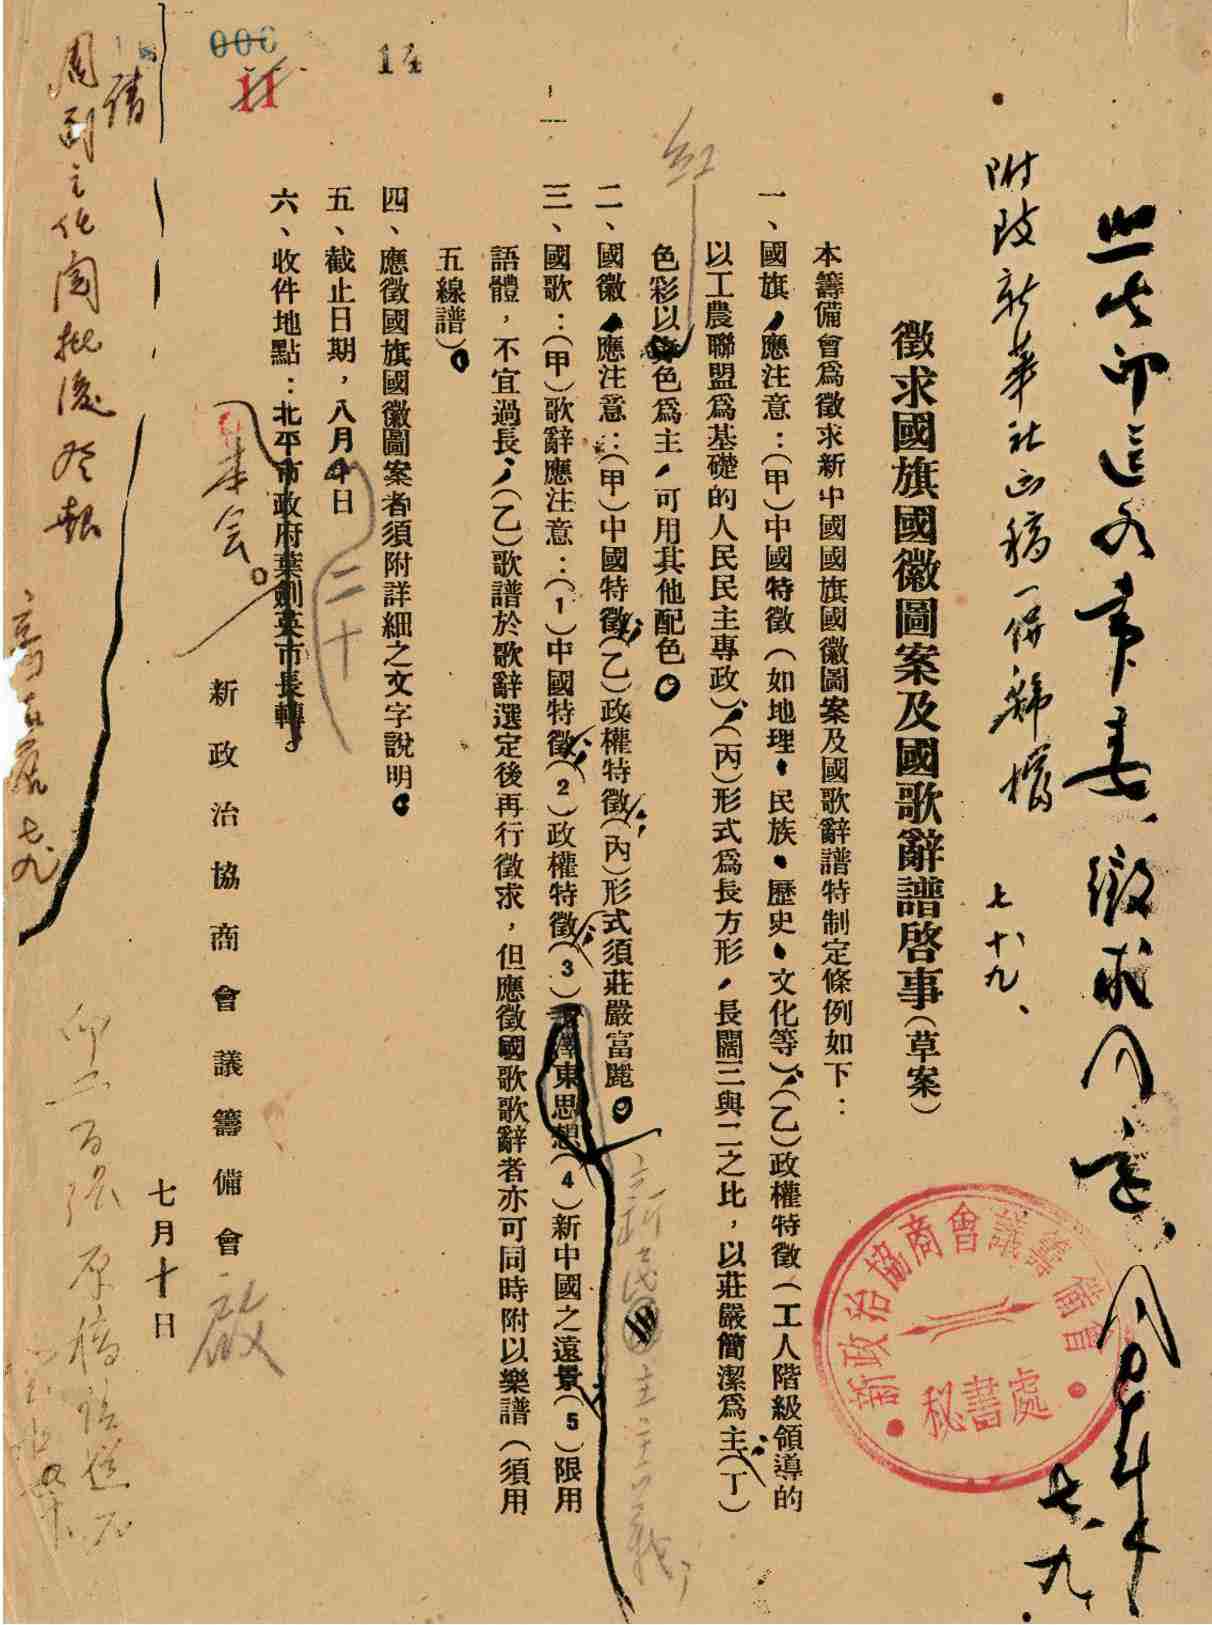 照此印送各常委徵求同意
周恩来
七、九
附改新華社正稿一併歸檔
七、十九、
徵求國旗國徽圖案及國歌辭譜啓事(草案)
本籌備會爲徵求新中國國旗國徽圖案及國歌辭譜特制定條例如下:
一、國旗,應注意:(甲)中國特徵(如地理、民族、歷史、文化等);(乙)政權特徵(工人階級領導的
以工農聯盟爲基礎的人民民主專政);(丙)形式爲長方形,長闊三與二之比,以莊嚴簡潔爲主;(丁)
色彩以色爲主,可用其他配色。
紅
二、國徽,應注意:(甲)中國特徵;(乙)政權特徵;(丙)形式須莊嚴富麗。
三、國歌:(甲)歌辭應注意:(1)中國特徵;(2)政權特徵;(3)毛澤東思想(4)新中國之遠景;(5)限用
新民主主義,
語體,不宜過長;(乙)歌譜於歌辭選定後再行徵求,但應徵國歌歌辭者亦可同時附以樂譜(須用
五線譜)。
四、應徵國旗國徽圖案者須附詳細之文字說明。
五、截止日期,八月十日
二十
六、收件地點:北平市政府葉劍英市長轉。
本会。
新政治協商會議籌備會
啟
七月十日
000
11
14
請
周副主任閱批後付報
七、九
印二百張原稿請送
新政治協商會議籌備會
秘書處